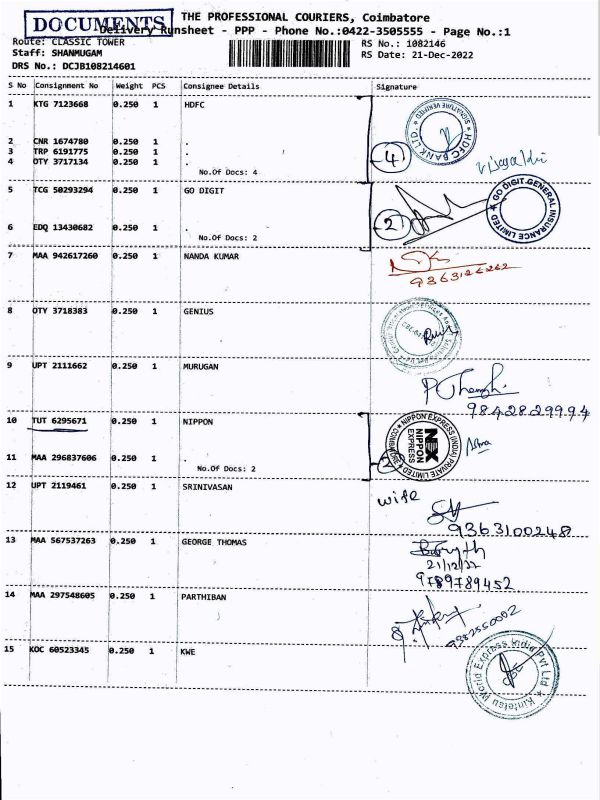 DOCUMENTS
THE PROFESSIONAL COURIERS, Coimbatore
Delivery Runsheet - PPP - Phone No.:0422-3505555 - Page No.:1
Route: CLASSIC TOWER RS No.: 1082146
Staff: SHANMUGAM RS Date: 21-Dec-2022
DRS No.: DCJB108214601
S No Consignment No Weight PCS Consignee Details Signature
1 KTG 7123668 0.250 1 HDFC
HDFC BANK LTD. * SIGNATURE VERIFIED
2 CNR 1674780 0.250 1 .
3 TRP 6191775 0.250 1 .
4 OTY 3717134 0.250 1 .
No.Of Docs: 4
4
5 TCG 50293294 0.250 1 GO DIGIT
GO DIGIT GENERAL INSURANCE LIMITED
6 EDQ 13430682 0.250 1 .
No.Of Docs: 2
2
7 MAA 942617260 0.250 1 NANDA KUMAR
9363126262
8 OTY 3718383 0.250 1 GENIUS
9 UPT 2111662 0.250 1 MURUGAN
9842829994
10 TUT 6295671 0.250 1 NIPPON
NIPPON EXPRESS (INDIA) PRIVATE LIMITED
NX
NIPPON
EXPRESS
11 MAA 296837606 0.250 1 .
No.Of Docs: 2
2
12 UPT 2119461 0.250 1 SRINIVASAN
wife
9363100248
13 MAA 567537263 0.250 1 GEORGE THOMAS
21/12/22
9789789452
14 MAA 297548605 0.250 1 PARTHIBAN
15 KOC 60523345 0.250 1 KWE
Kintetsu World Express India Pvt Ltd